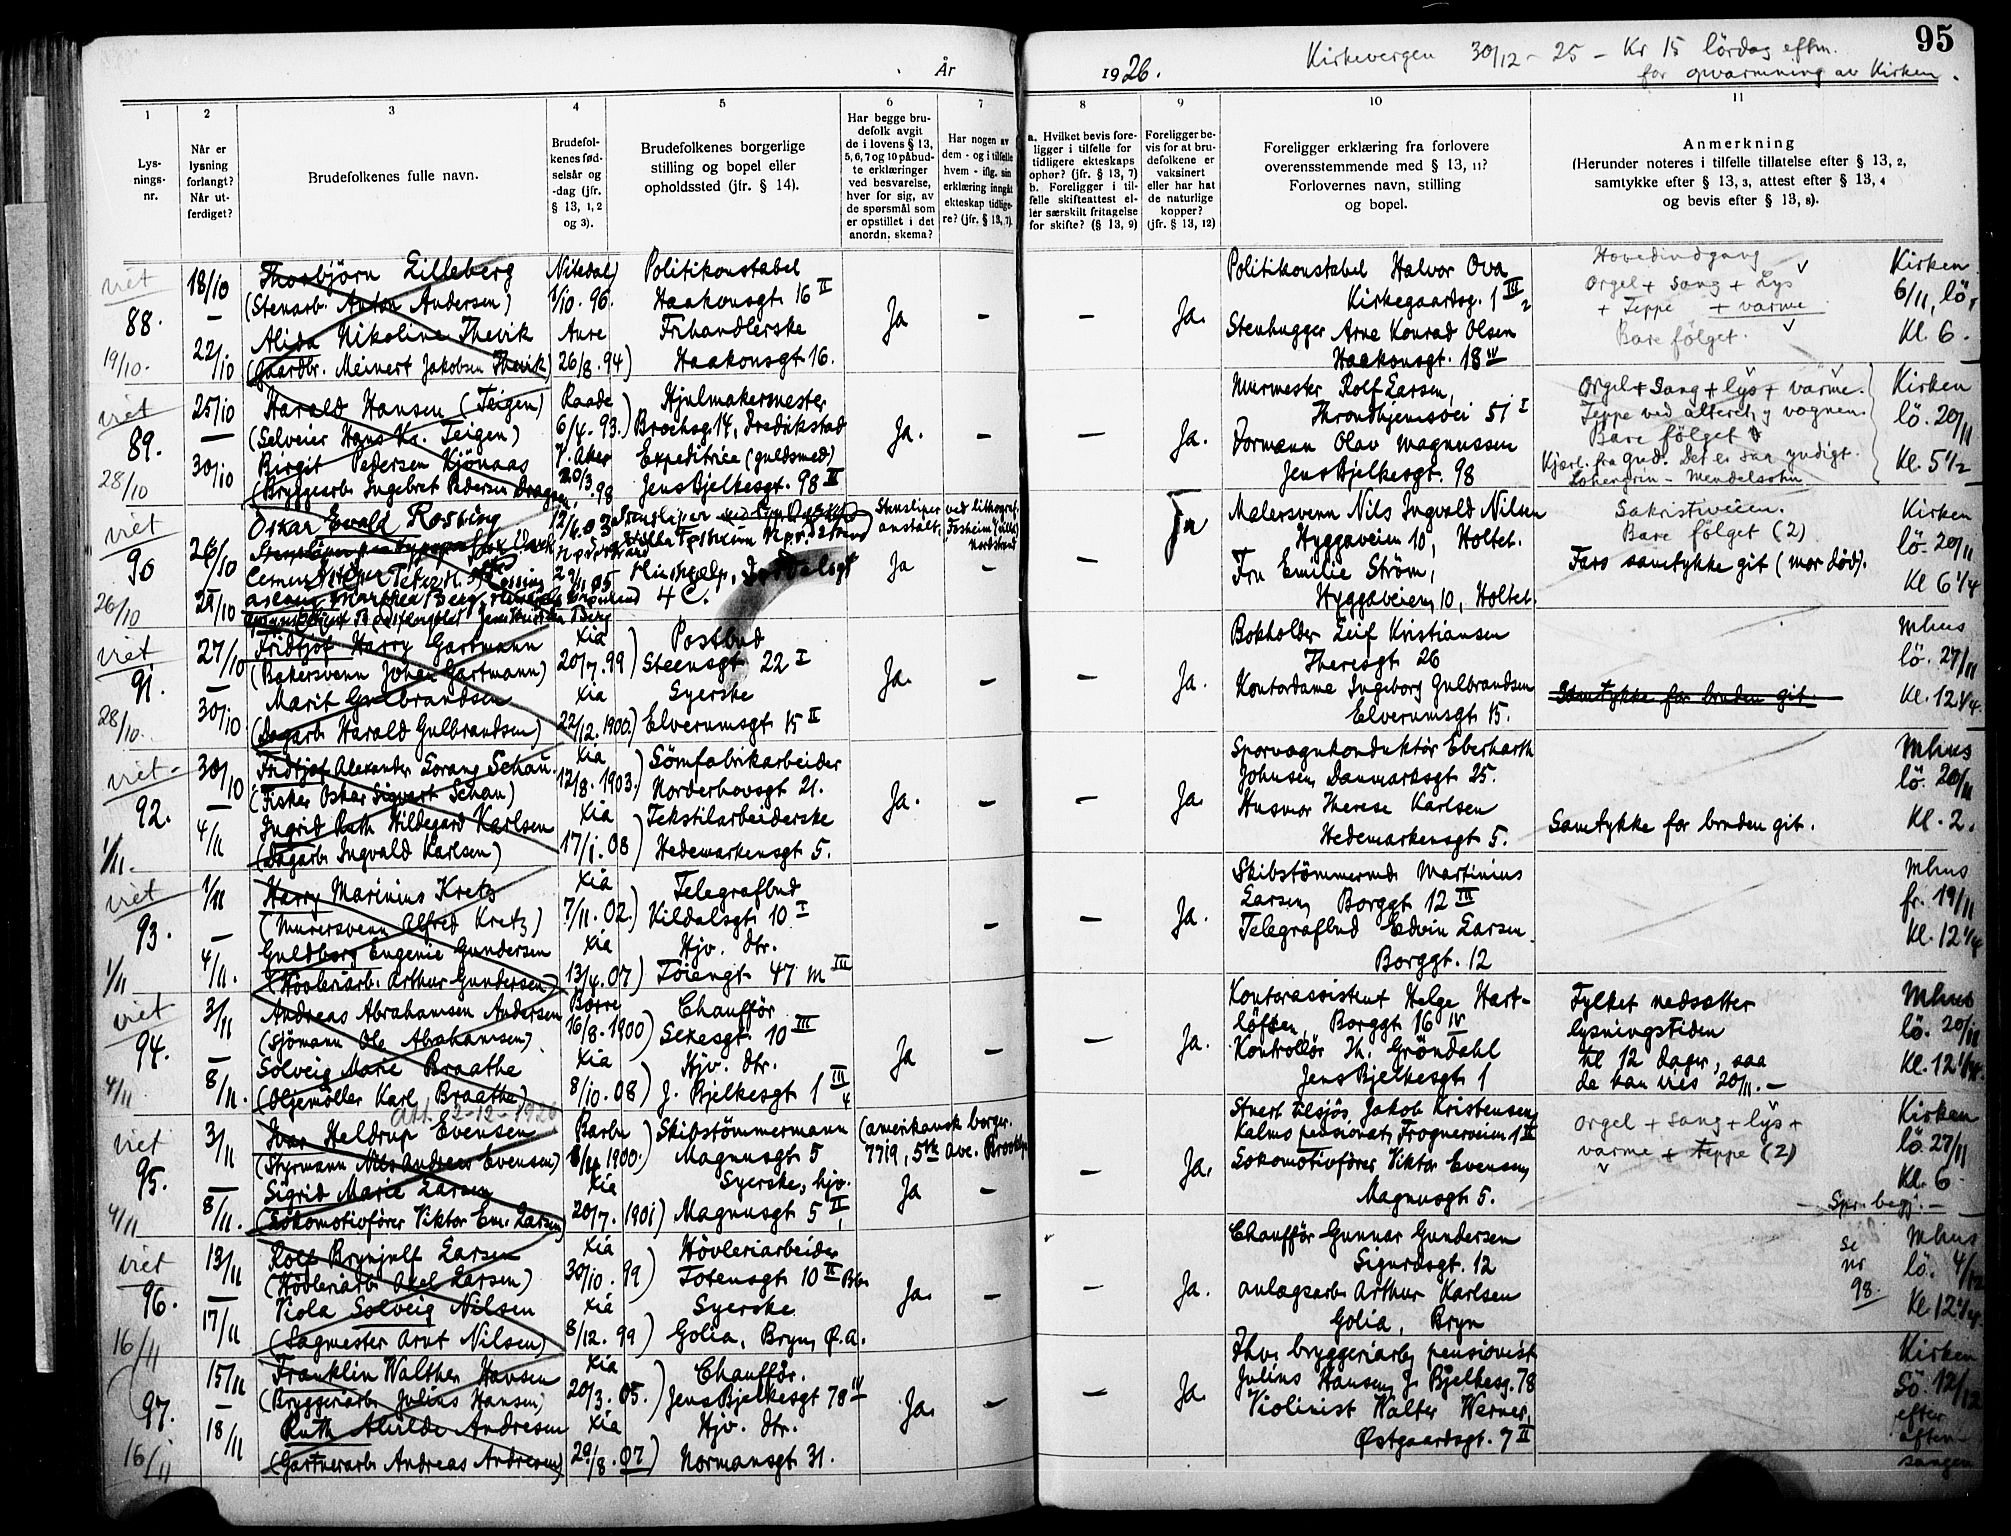 95
År
1926.
Kirkevergen 30/12 - 25 - Kr 15 lördag eftm.
for opvarmning av Kirken.
1
Lys-
nings-
nr.
2
Når er
lysning
forlangt?
Når ut-
ferdiget?
3
Brudefolkenes fulle navn.
4
Brudefol-
kenes fød-
selsår og
-dag (jfr.
§ 13, 1, 2
og 3).
5
Brudefolkenes borgerlige
stilling og bopel eller
opholdssted (jfr. § 14).
6
Har begge bru-
defolk avgit
de i lovens § 13,
5, 6, 7 og 10 påbud-
te erklæringer
ved besvarelse,
hver for sig, av
de spørsmål som
er opstillet i det
anordn. skema?
7
Har nogen av
dem - og i tilfelle
hvem - iflg. sin
erklæring inngått
ekteskap tidlige-
re? (jfr. § 13, 7)
8
a. Hvilket bevis fore-
ligger i tilfelle for
tidligere ekteskaps
ophør? (jfr. § 13, 7)
b. Foreligger i til-
felle skifteattest el-
ler særskilt fritagelse
for skifte? (§ 13, 9)
9
Foreligger be-
vis for at bru-
defolkene er
vaksinert
eller har hat
de naturlige
kopper?
(jfr. § 13, 12)
10
Foreligger erklæring fra forlovere
overensstemmende med § 13, 11?
Forlovernes navn, stilling
og bopel.
11
Anmerkning
(Herunder noteres i tilfelle tillatelse efter § 13, 2,
samtykke efter § 13, 3, attest efter § 13, 4
og bevis efter § 13, 8).
viet
88.
19/10.
18/10
—
22/10
Thorbjörn Lilleberg
(Stenarb. Anton Andersen)
Alida Nikoline Thevik
(gaardbr. Meinert Jakobsen Thevik)
Nitedal
1/10. 96.
Aure
26/8. 94)
Politikonstabel
Haakonsgt. 16 II
Frihandlerske
Haakonsgt. 16.
Ja
—
—
Ja.
Politikonstabel Halvor Ova
Kirkegaardsg. 1 III
Stenhugger Arne Konrad Olsen
Haakonsgt. 18 IV
Hovedindgang
Orgel + Sang + Lys
+ Teppe + varme
Bare følget.
Kirken
6/11, lö,
Kl. 6.
viet
89.
28/10
25/10
—
30/10
Harald Hansen (Teigen)
(Selveier Hans Kr. Teigen)
Birgit Pedersen Kjönaas
(Bryggearb. Ingebret Pedersen
Raade
6/4. 93.)
V. Aker
20/3. 98
Hjulmakermester
Brochsg. 14, Fredrikstad
Expeditrice (guldsmed)
Jens Bjelkesgt. 98 II
Ja.
—
—
Ja.
Murmester Rolf Larsen,
Throndhjemsvei 51 I
Formann Olav Magnussen
Jens Bjelkesgt. 98
Orgel + Sang + lys + varme.
Teppe ved alteret, y vognen.
Bare følget
Kjærl. fra Gud. Det er saa yndigt.
Lohengrin - Mendelsohn
Kirken
lö. 20/11
Kl. 5 1/2
viet
90
26/10
26/10
29/10
Oskar Evald Rosbing
12/6. 03
29/11 05
Hushjælp,
4 C.
Stensliper ved lithograf.
anstalt,
Nordstrand
Ja
—
—
Ja
Malersvenn Nils Ingvald Nilsen
Hyggaveien 10, Holtet.
Fru Emilie Ström,
Hyggaveien 10, Holtet.
Sakristiveien.
Bare følget (2)
Fars samtykke git (mor död).
Kirken
lö. 20/11
Kl 6 1/4
viet
91.
28/10.
27/10
—
30/10
Fridtjof Harry Gartmann
(Bakersvenn Johan Gartmann)
Marit Gulbrandsen
(Dagarb. Harald Gulbrandsen)
Xia
20/7. 99)
Xia
22/12. 1900.)
Postbud
Steensgt. 22 I
Syerske
Elverumsgt. 15 II
Ja.
—
—
Ja.
Bokholder Leif Kristiansen
Theresgt. 26
Kontordame Ingeborg Gulbrandsen
Elverumsgt. 15.
Samtykke for bruden git.
Mhus
lö. 27/11
Kl. 12 1/4.
viet
92.
1/11.
30/10
—
4/11
Fridtjof Alexander Sorang Schau.
(Fisker Oskar Sigvart Schau)
Ingrid Ruth Hildegard Karlsen
(Dagarb. Ingvald Karlsen)
Xia
12/8. 1903.)
Xia
17/1. 08)
Sömfabrikarbeider
Norderhovsgt. 21.
Tekstilarbeiderske
Hedemarkensgt. 5.
Ja.
—
—
Ja.
Sporvognkonduktør Eberharth
Johnsen, Danmarksgt. 25.
Husmor Therese Karlsen
Hedemarkensgt. 5.
Samtykke for bruden git.
Mhus
lö. 20/11
Kl. 2.
viet
93.
1/11
1/11
—
4/11.
Harry Marinius Kretz
(Murersvenn Alfred Kretz)
Guldborg Eugenie Gundersen
(Hövleriarb. Arthur Gundersen)
Xia
7/11. 02.)
Xia
13/4. 07)
Telegrafbud
Kildalsgt. 10 I
Hjv. dtr.
Töiengt. 47 m III
—
—
Ja.
Skibstömmermd. Martinius
Larsen, Borggt. 12 III
Telegrafbud Edvin Larsen
Borggt. 12
Mhus
fr. 19/11
Kl. 12 1/4
viet
94.
4/11
3/11
—
8/11.
Andreas Abrahamsen Andersen
(Sjömann Ole Abrahamsen)
Solveig Marie Braathe
(Oljemöller Karl Braathe)
Borre
16/8. 1900)
Xia
8/10. 08)
Chauffør
Sexesgt. 10 III
Hjv. dtr.
J. Bjelkesgt. 1 III
Ja
—
—
Ja.
Kontorassistent Helge Hart-
löfsen, Borggt. 16 IV
Kontrollör Th. Gröndahl
Jens Bjelkesgt. 1
Fylket nedsætter
lysningstiden
til 12 dager, saa
de kan vies 20/11. —
Mhus
lö. 20/11
Kl. 12 1/4.
viet
95.
4/11
3/11
—
8/11.
Att. 2-12-1926
Ivar Heldrup Evensen
(Styrmann Nils Andreas Evensen)
Sigrid Marie Larsen
(Lokomotivfører Viktor Em. Larsen)
Barbu
1900.
Xia
20/7. 1901)
Skibstömmermann
Magnusgt. 5
Syerske, hjv.
Magnusgt. 5 II,
(amerikansk borger.
7719, 5th Ave. Brooklyn
Ja
—
—
Ja.
Stuert tilsjös Jakob Kristensen,
Kalms pensionat, Frognerveien 1 II
Lokomotivfører Viktor Evensen,
Magnusgt. 5.
Orgel + Sang + lys +
varme + teppe (2)
Kirken
lö. 27/11
Kl. 6
— Spr. begj. —
viet
96.
16/11
13/11
—
17/11
Rolf Brynjulf Larsen
(Hövleriarb. Axel Larsen)
Viola Solveig Nilsen
(Sagmester Arnt Nilsen)
Xia
30/10. 99)
Xia
8/12. 99)
Hövleriarbeider
Totensgt. 10 II
Syerske
Golia, Bryn, Ø. A.
Ja.
—
—
Ja.
Chauffør Gunnar Gundersen
Sigurdsgt. 12
Anlægsarb. Arthur Karlsen
Golia, Bryn
Se
nr
98.
Mhus
lö. 4/12
Kl. 12 1/4.
97.
16/11
15/11
—
18/11
Franklin Walther Hansen
(Bryggeriarb. Julius Hansen)
Ruth Alvilde Andresen
(Gartnerarb. Andreas Andresen)
Xia
20/3. 05.)
Xia
29/8. 07)
Chauffør.
Jens Bjelkesgt. 78 IV
Hjv. dtr.
Normansgt. 31.
Ja.
—
—
Ja.
Fhv. bryggeriarb., pensionist
Julius Hansen, J. Bjelkesg. 78
Violinist Walter Werner,
Østgaardsgt. 7 II
Kirken
Sö. 12/12
efter
aften-
sangen